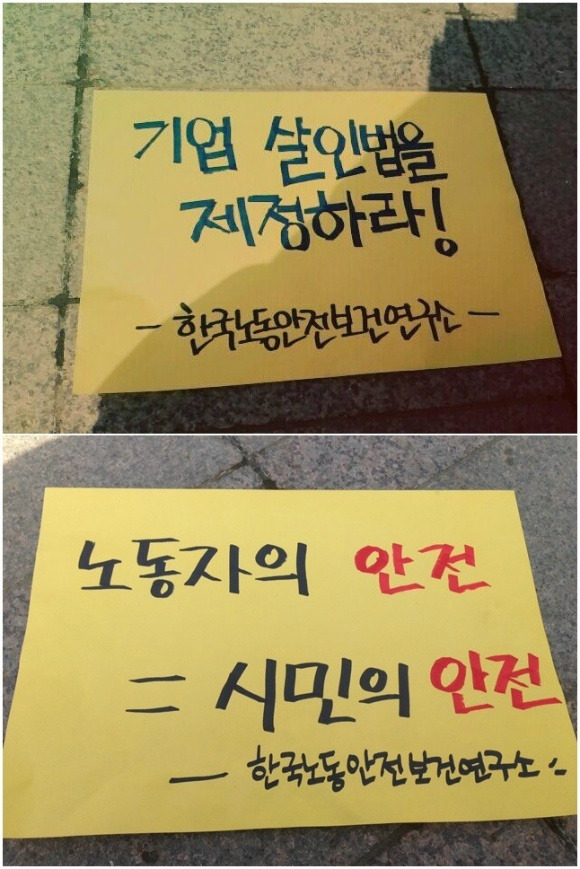 기업 살인법을
제정하라!
- 한국노동안전보건연구소 -
노동자의 안전
= 시민의 안전
- 한국노동안전보건연구소 -